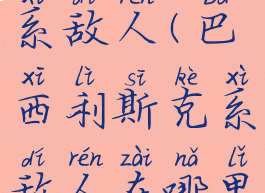 系敌人(巴
xī lì sī kè xì
西利斯克系
dí rén zài nǎ lǐ
敌人在哪里